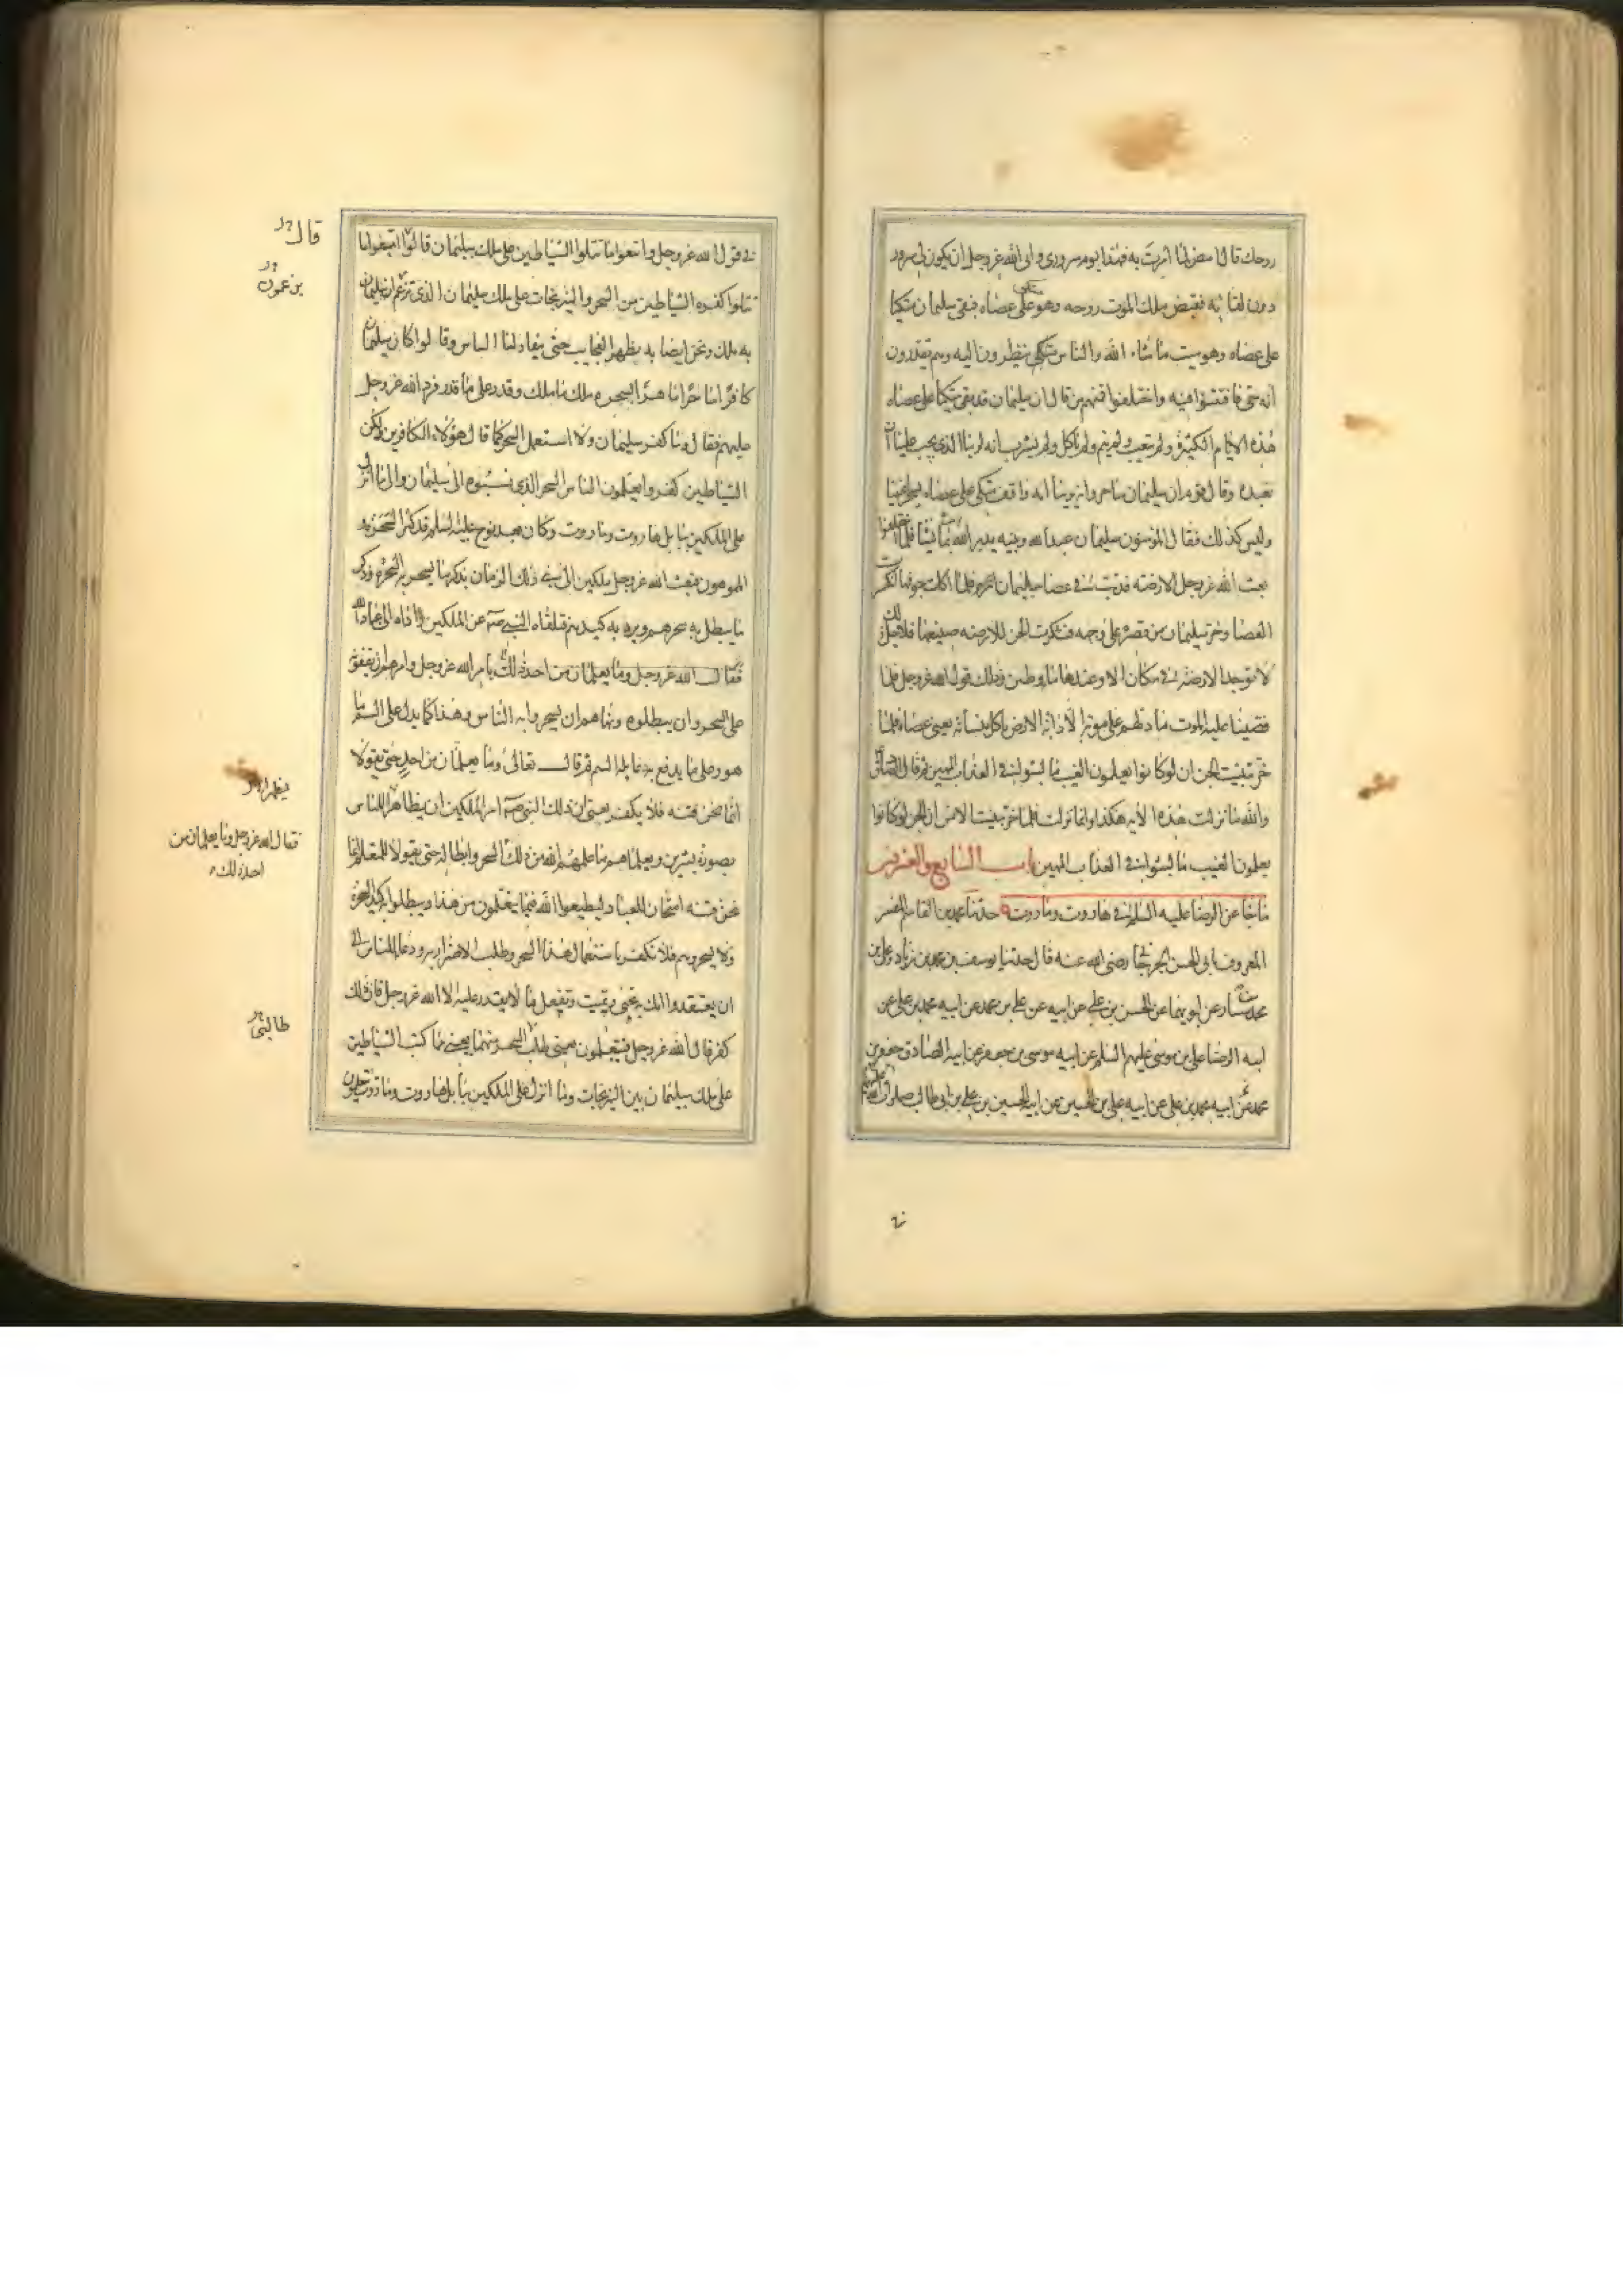 روحك قال امض لما امرت به فهذا يوم سروري وابى الله عز وجل ان يكون لي سرور
دون لقائه فقبض ملك الموت روحه وهو متكئ على عصاه فبقى سليمان متكيا
على عصاه وهو ميت ما شاء الله والناس ينظرون اليه وهم يقدرون
انه حي فافتتنوا فيه واختلفوا فمنهم من قال ان سليمان قد بقي متكيا على عصاه
هذه الايام الكثيرة ولم يتعب ولم ينم ولم ياكل ولم يشرب انه لربنا الذي يجب علينا ان
نعبده وقال قوم ان سليمان ساحر وانه يرينا انه واقف متكئ على عصاه يسحر اعيننا
وليس كذلك فقال المؤمنون سليمان عبد الله ونبيه يدبر الله بما يشا فلما اختلفوا
بعث الله عز وجل الارضه فدبت في عصا سليمان فلما اكلت جوفها انكسرت
العصا وخر سليمان من قصره على وجهه فشكرت الجن للارضه صنيعها فلاجل ذلك
لا توجد الارضه في مكان الا وعندها ماء وطين وذلك قول الله عز وجل فلما
قضينا عليه الموت ما دلهم على موته الا دابة الارض تاكل منساته يعني عصاه فلما
خر تبينت الجن ان لو كانوا يعلمون الغيب ما لبثوا في العذاب المهين ثم قال الصادق
والله ما نزلت هذه الايه هكذا وانما نزلت فلما خر تبينت الانس ان الجن لو كانوا
يعلمون الغيب ما لبثوا في العذاب المهين باب السابع والعشرين
ما جا عن الرضا عليه السلم في هاروت وماروت حدثنا محمد بن القاسم المفسر
المعروف بابي الحسن الجرجاني رضي الله عنه قال حدثنا يوسف بن محمد بن زياد وعلي بن
محمد بن سيار عن ابويهما عن الحسن بن علي عن ابيه عن علي بن محمد عن ابيه محمد بن علي عن
ابيه الرضا علي بن موسى عليهم السلم عن ابيه موسى بن جعفر عن ابيه الصادق جعفر بن
محمد عن ابيه محمد بن علي عن ابيه علي بن الحسين عن ابيه الحسين بن علي بن ابي طالب صلوات الله عليهم
في قول الله عز وجل واتبعوا ما تتلوا الشياطين على ملك سليمان قالوا اتبعوا ما
تتلوا كفره الشياطين من السحر والنيرنجات على ملك سليمان الذي تزعم ان سليمان
به ملك ونحن ايضا به نظهر العجايب حتى ينقاد لنا الناس وقالوا كان سليمان
كافرا ساحرا ماهرا بسحره ملك ما ملك وقدر على ما قدر فرد الله عز وجل
عليهم فقال وما كفر سليمان ولا استعمل السحر كما قال هؤلاء الكافرين ولكن
الشياطين كفروا يعلمون الناس السحر الذي نسبوه الى سليمان والى ما انزل
على الملكين ببابل هاروت وماروت وكان بعد نوح عليه السلم قد كثر السحره و
المموهون فبعث الله عز وجل ملكين الى نبي ذلك الزمان بذكر ما يسحر به السحره وذكر
ما يبطل به سحرهم ويرد به كيدهم فتلقاه النبي ص عن الملكين واداه الى عباد الله
فقال الله عز وجل وما يعلمان من احد ذلك بامر الله عز وجل وامرهم ان يقفوا
على السحر وان يبطلوه ونهاهم ان يسحروا به الناس وهذا كما يدل على السم ما
هو وعلى ما يدفع به غايله السم ثم قال تعالى وما يعلمان من احد حتى يقولا
انما نحن فتنه فلا تكفر يعني ان ذلك النبي ص امر الملكين ان يظهرا للناس
بصورة بشرين ويعلماهم ما علمهم الله من ذلك السحر وابطاله حتى يقولا للمتعلم انما
نحن فتنه امتحان للعباد ليطيعوا الله فيما يتعلمون من هذا ويبطلوا به كيد السحره
ولا يسحروهم فلا تكفر باستعمال هذا السحر وطلب الاضرار به ودعا للناس الى
ان يعتقدوا انك به تحيي وتميت وتفعل ما لا يقدر عليه الا الله عز وجل فان ذلك
كفر قال الله عز وجل فيتعلمون يعني طلب السحر منهما يعني مما كتب الشياطين
على ملك سليمان من النيرنجات وما انزل على الملكين ببابل هاروت وماروت يتعلمون
قال
يزعمون
يظهرا
فقال الله عز وجل وما يعلمان من
احد ذلك
طالبي